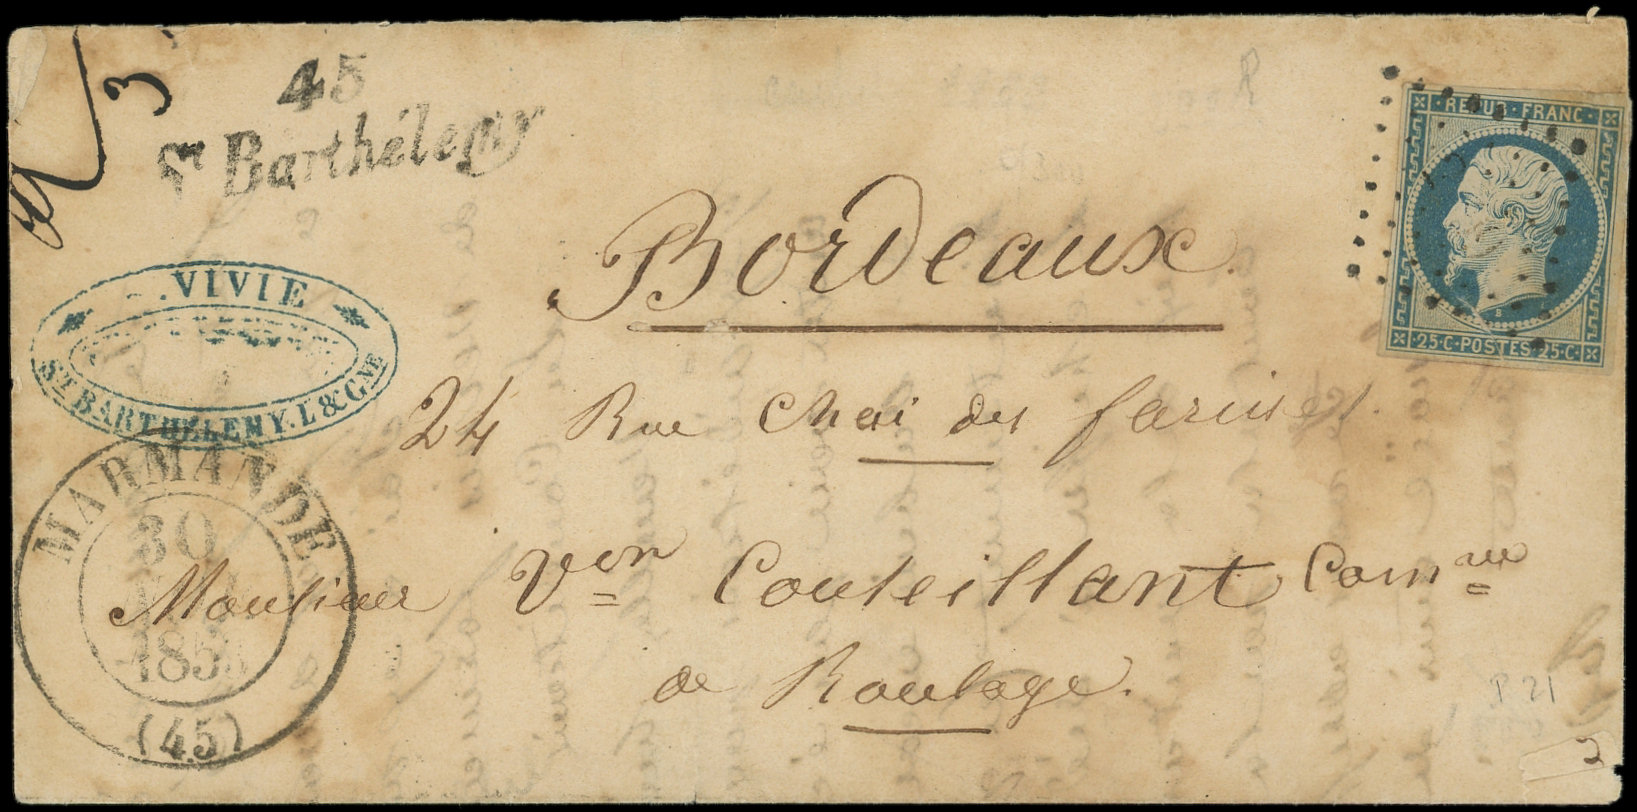 3
45
St Barthélemy
REPUB. FRANC.
B
25.C.POSTES.25.C.
Bordeaux
VIVIE
ST BARTHÉLEMY. L & GNE
24 Rue Chai des farines
MARMANDE
30
185
(45)
Monsieur Vor Couteillant Com
de Roulage.
P 21
2